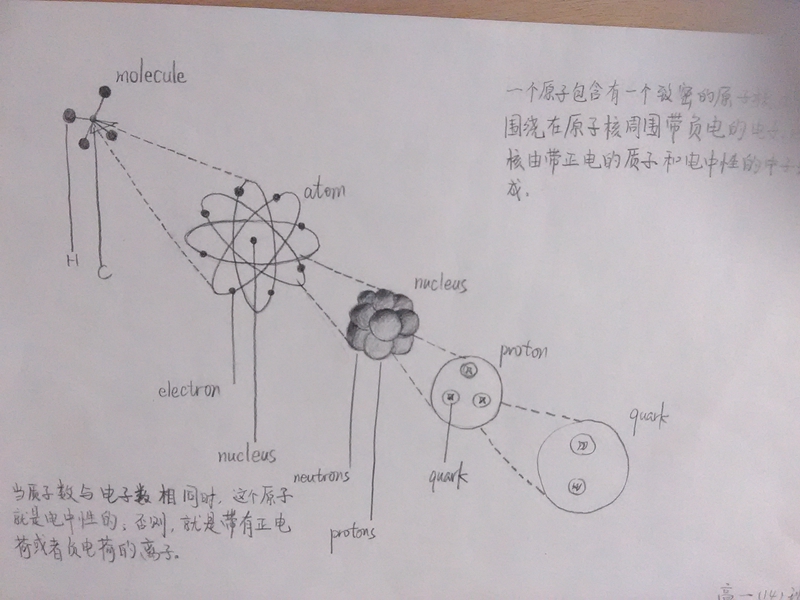 molecule
一个原子包含有一个致密的原子核
围绕在原子核周围带负电的电子
核由带正电的质子和电中性的中子
成.
atom
H
C
nucleus
proton
electron
quark
nucleus
neutrons
quark
protons
当质子数与电子数相同时,这个原子
就是电中性的;否则,就是带有正电
荷或者负电荷的离子。
高一